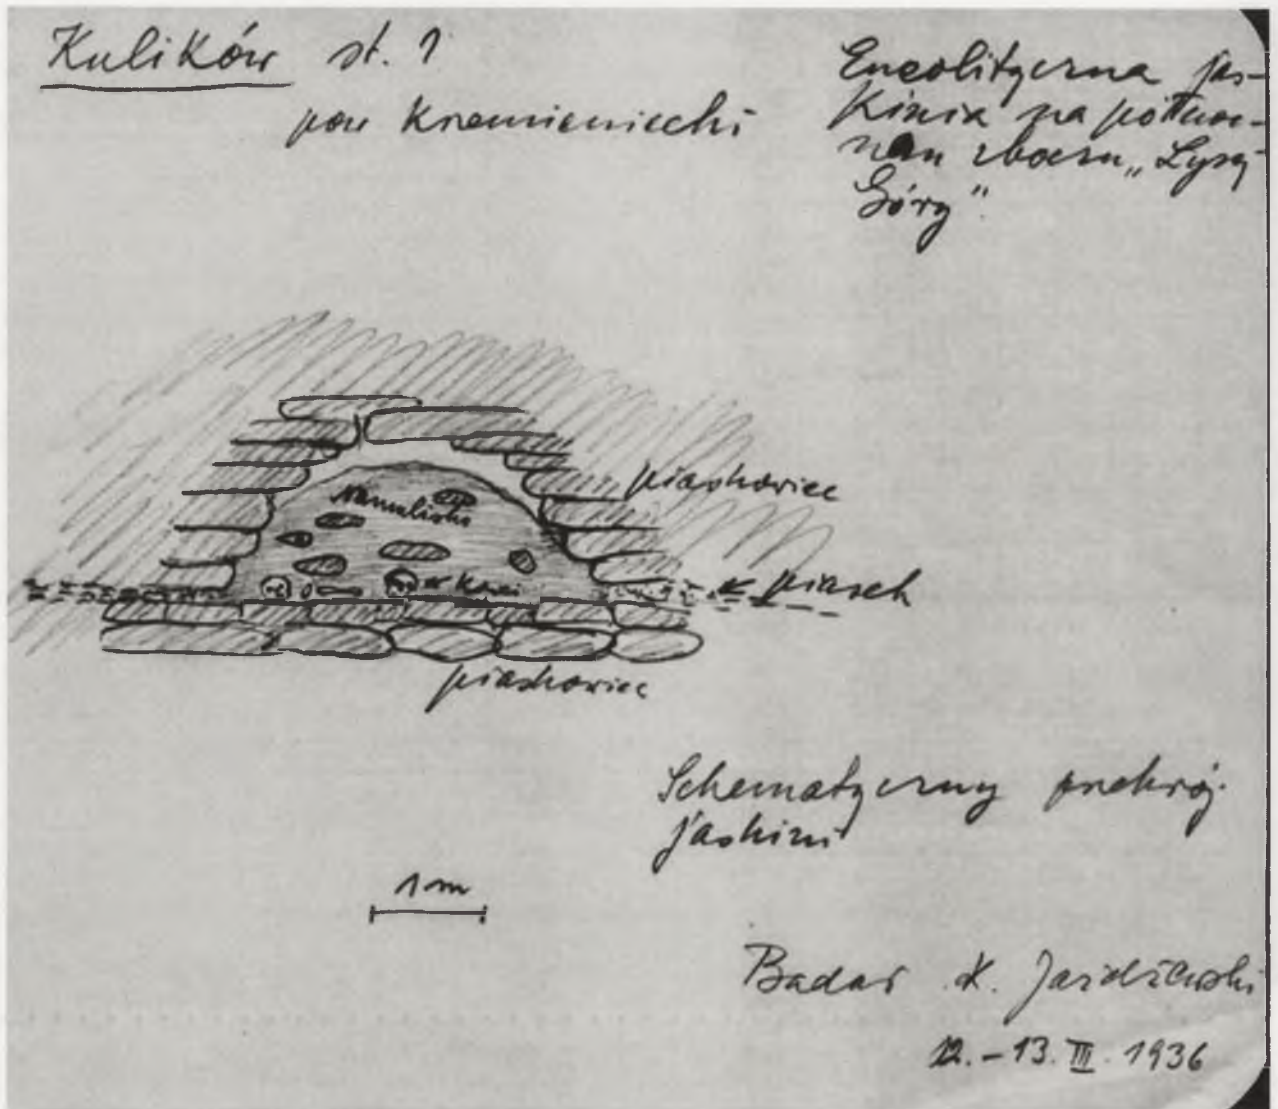 Kulików st. 1
pow Krzemieniecki
Eneolityczna jas-
kinia na północ-
nym zboczu „Łysej
Góry”
piaskowiec
Namulisko
← kości
← piasek
piaskowiec
Schematyczny przekrój
jaskini
1 m
Badał K. Jażdżewski
12.-13.III.1936